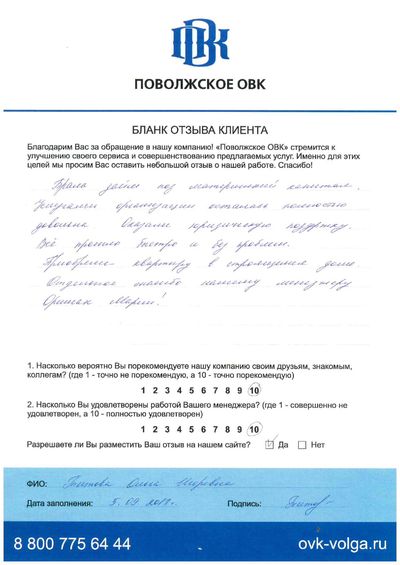 ОВК
ПОВОЛЖСКОЕ ОВК
БЛАНК ОТЗЫВА КЛИЕНТА
Благодарим Вас за обращение в нашу компанию! «Поволжское ОВК» стремится к
улучшению своего сервиса и совершенствованию предлагаемых услуг. Именно для этих
целей мы просим Вас оставить небольшой отзыв о нашей работе. Спасибо!
Брала займ под материнский капитал.
организации осталась полностью
довольна Оказали юридическую
Всё прошло быстро и без проблем.
Приобрели квартиру в строящемся доме.
Отдельное спасибо нашему менеджеру
Марии!
1. Насколько вероятно Вы порекомендуете нашу компанию своим друзьям, знакомым,
коллегам? (где 1 - точно не порекомендую, а 10 - точно порекомендую)
1 2 3 4 5 6 7 8 9 10
2. Насколько Вы удовлетворены работой Вашего менеджера? (где 1 - совершенно не
удовлетворен, а 10 - полностью удовлетворен)
1 2 3 4 5 6 7 8 9 10
Разрешаете ли Вы разместить Ваш отзыв на нашем сайте? Да Нет
ФИО: Ольга
Дата заполнения: 5.09 Подпись:
8 800 775 64 44 ovk-volga.ru